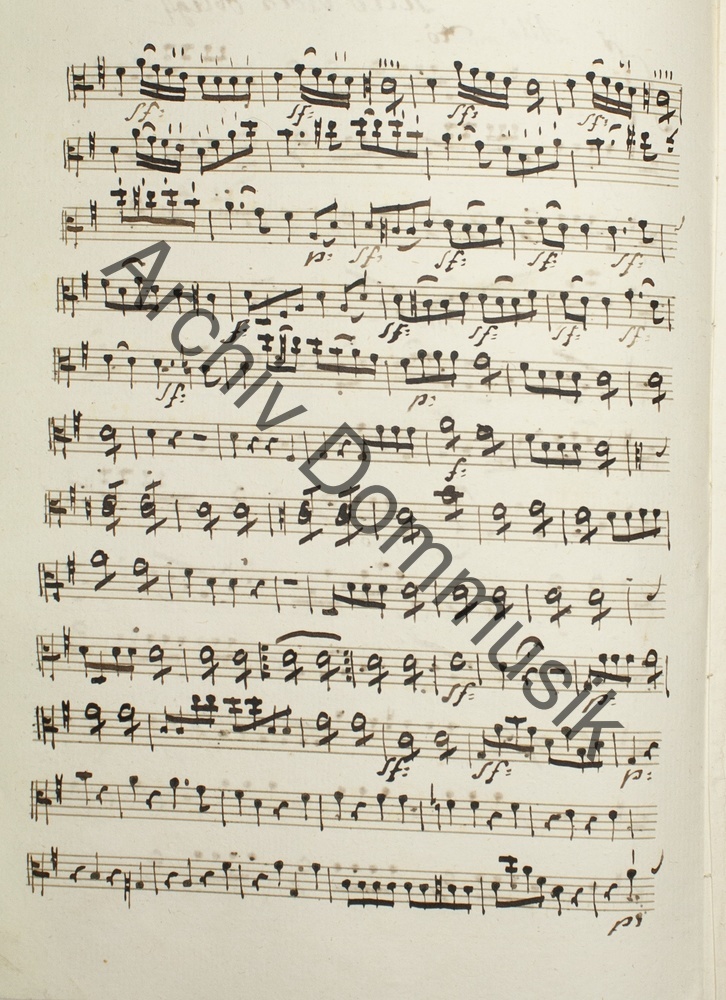 sf: sf: sf: sf:
p: sf: sf: sf: sf:
f: sf: sf: sf: sf:
sf: p:
f:
sf:
sf: sf: p:
Archiv Dommusik